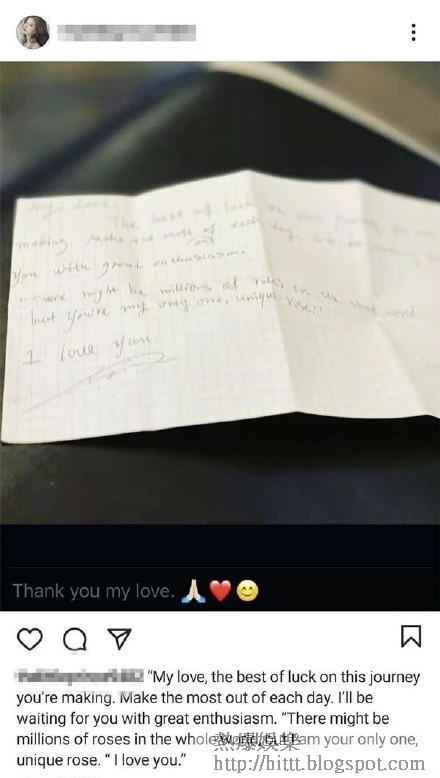 My love
The best of luck on this
making Make the most of each day.
out
You with great enthusiasm.
"There might be millions of roses in the whole world
but You're my only one, unique rose."
I love you.
Thank you my love. 🙏🏻❤️😊
"My love, the best of luck on this journey
you're making. Make the most out of each day. I'll be
waiting for you with great enthusiasm. "There might be
millions of roses in the whole am your only one,
unique rose. " I love you."
熱爆娛樂
http://hittt.blogspot.com